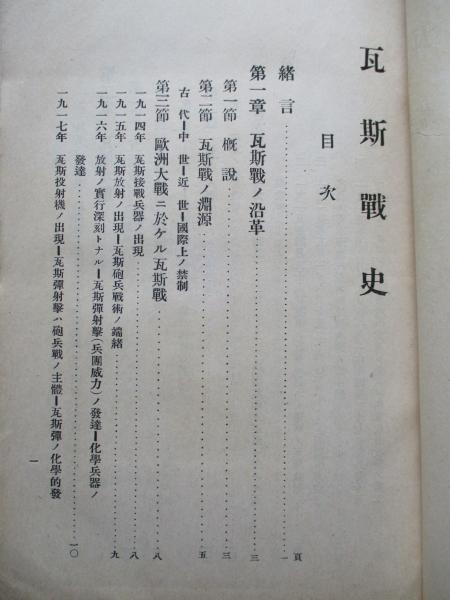 瓦斯戰史
目次
頁
緒言……一
第一章 瓦斯戰ノ沿革……三
第一節 概說……三
第二節 瓦斯戰ノ淵源……五
古代ー中世ー近世ー國際上ノ禁制
第三節 歐洲大戰ニ於ケル瓦斯戰……八
一九一四年 瓦斯接戰兵器ノ出現……八
一九一五年 瓦斯放射ノ出現ー瓦斯砲兵戰術ノ端緒……九
一九一六年 放射ノ實行深刻トナルー瓦斯彈射擊(兵團威力)ノ發達ー化學兵器ノ
發達……一〇
一九一七年 瓦斯投射機ノ出現ー瓦斯彈射擊ハ砲兵戰ノ主體ー瓦斯彈ノ化學的發
一